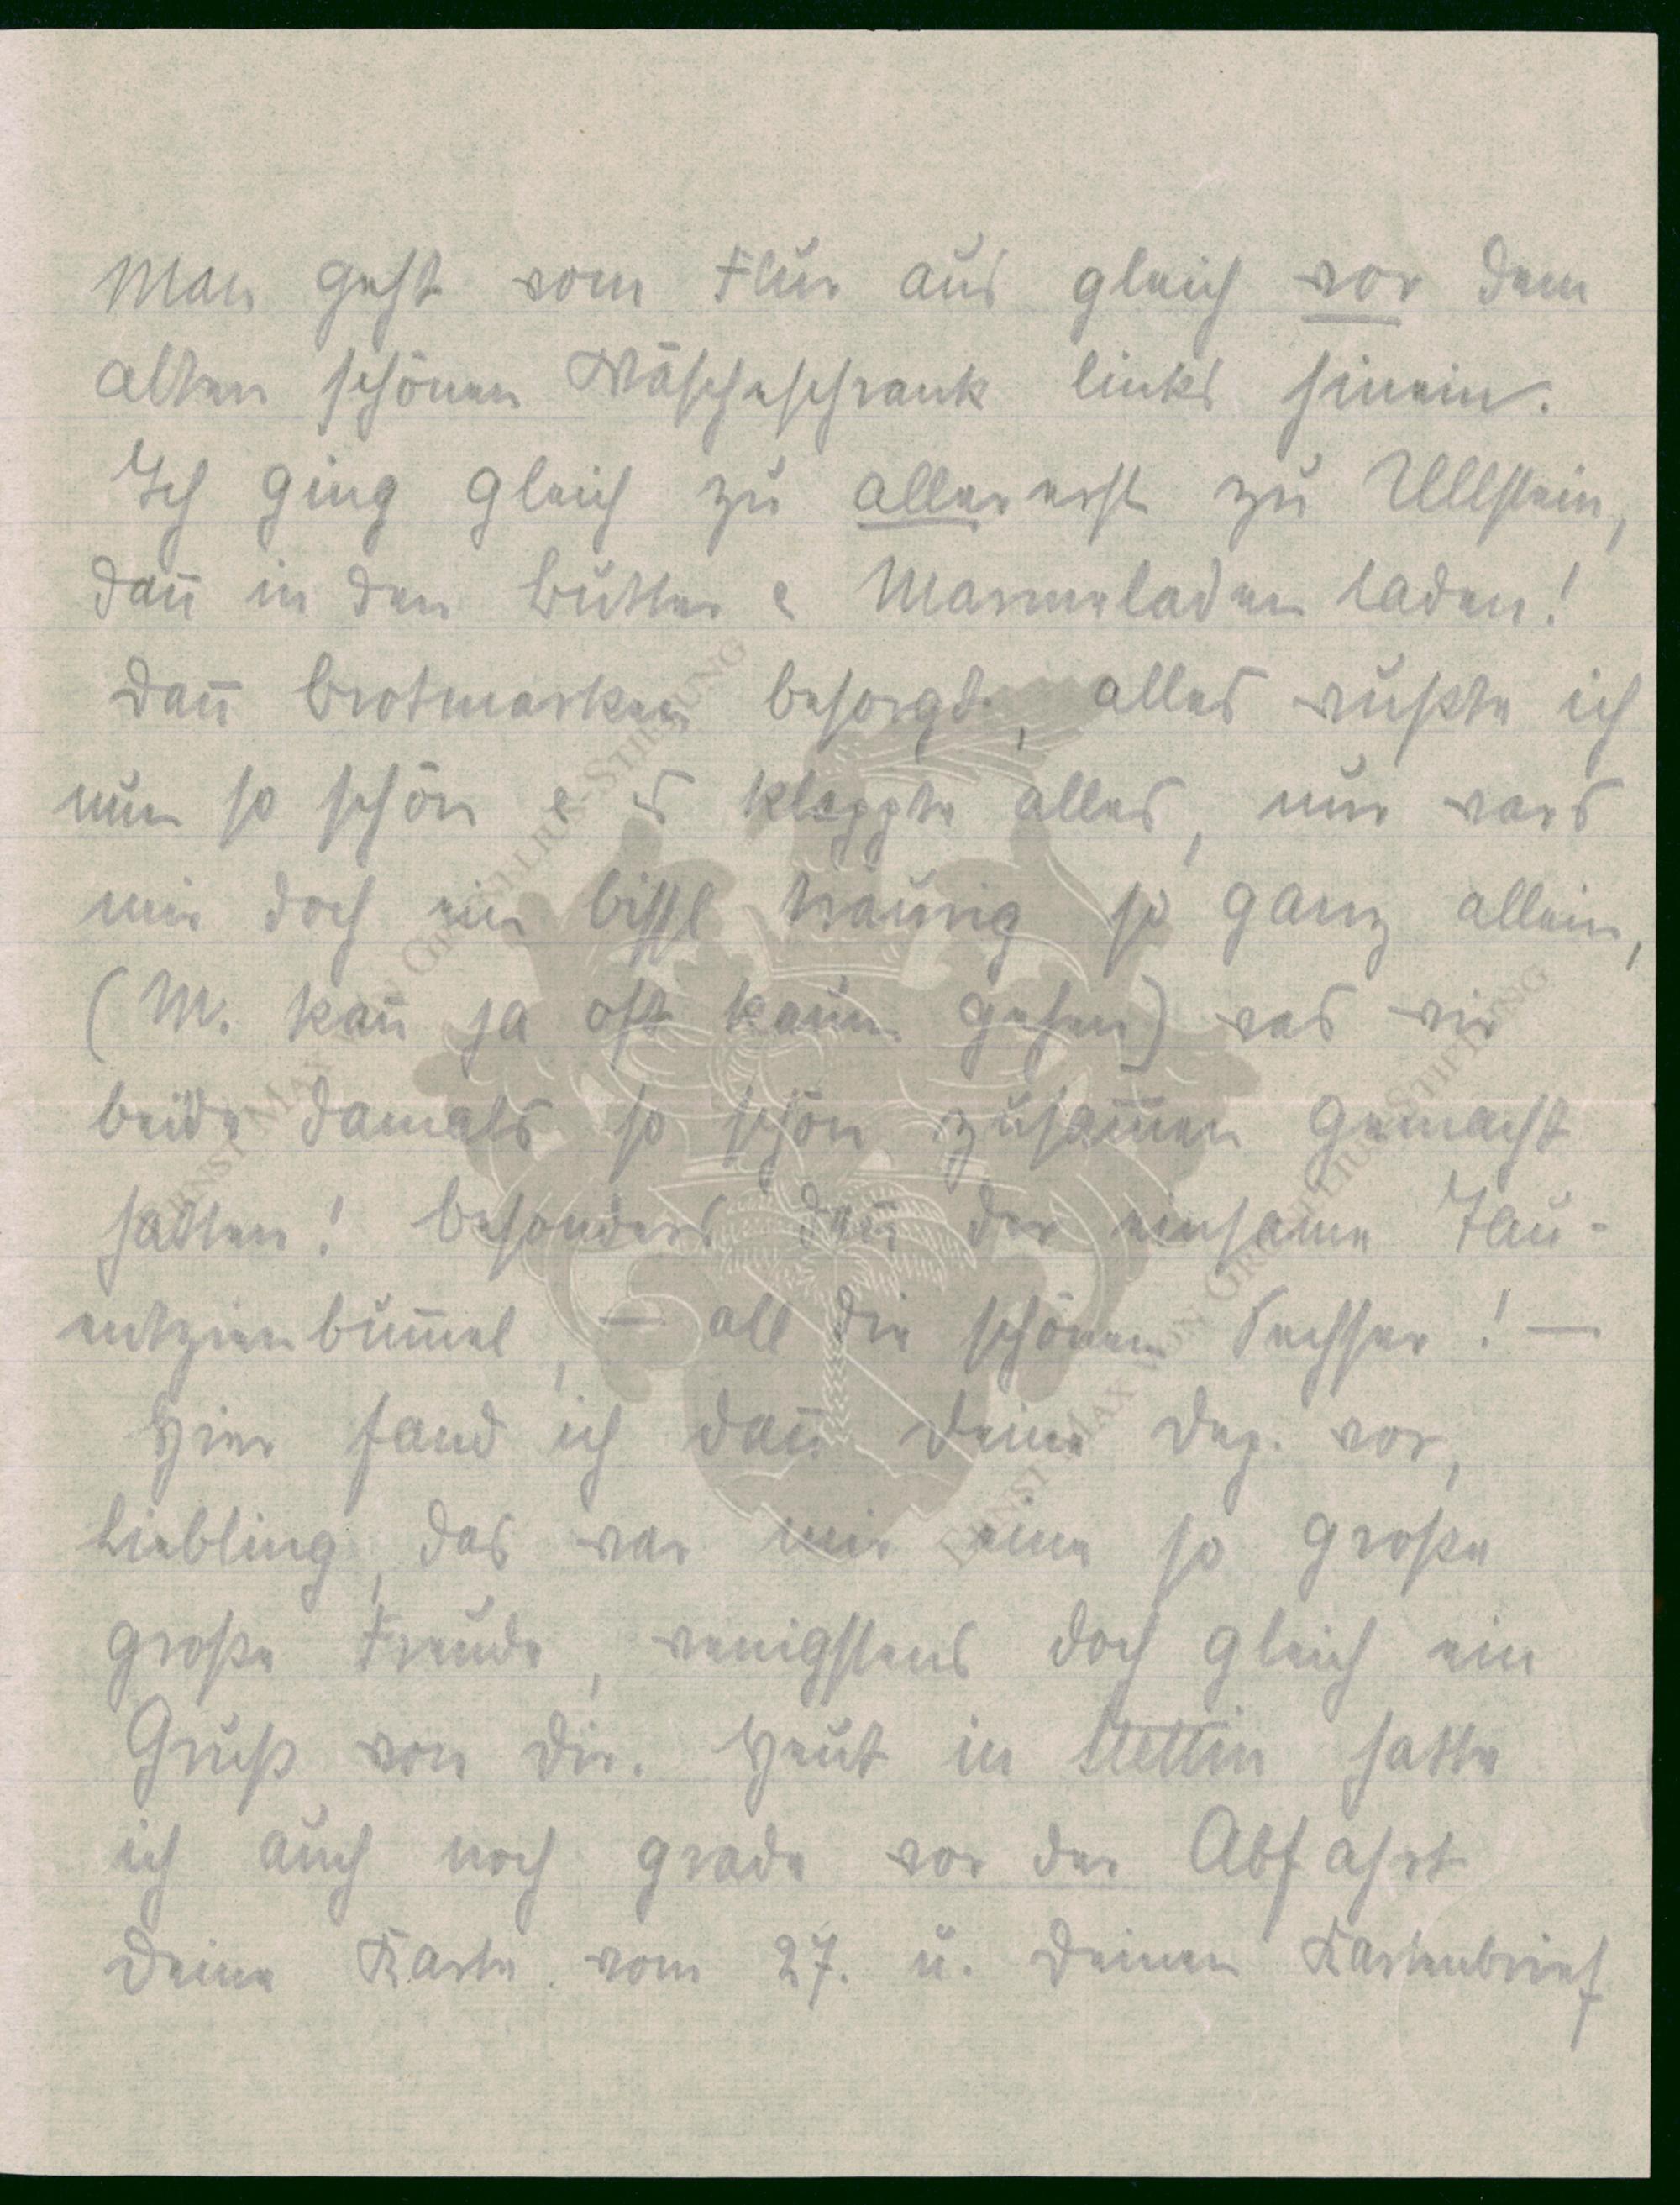 Man geht vom Flur aus gleich vor dem
alten schönen Wäscheschrank links hinein.
Ich ging gleich zu allererst zu Ullstein,
dan̄ in den Butter & Marmeladen laden!
Dan̄ Brotmarken besorgt, alles wußte ich
nun so schön & es klappte alles, nur wars
mir doch ein bissl traurig so ganz allein,
(M. kan̄ ja oft kaum gehen) was wir
beide damals so schön zusam̄en gemacht
hatten! Besonders dan̄ der einsame Tau-
entzienbum̄el, — all die schönen Sechser! —
Hier fand ich dan̄ Deine Dep. vor,
Liebling, das war mir eine so große
große Freude, wenigstens doch gleich ein
Gruß von Dir. Heut in Stettin hatte
ich auch noch grade vor der Abfahrt
Deine Karte vom 27. u. Deinen Kartenbrief
ERNST MAX VON GRUNELIUS-STIFTUNG
ERNST MAX VON GRUNELIUS-STIFTUNG